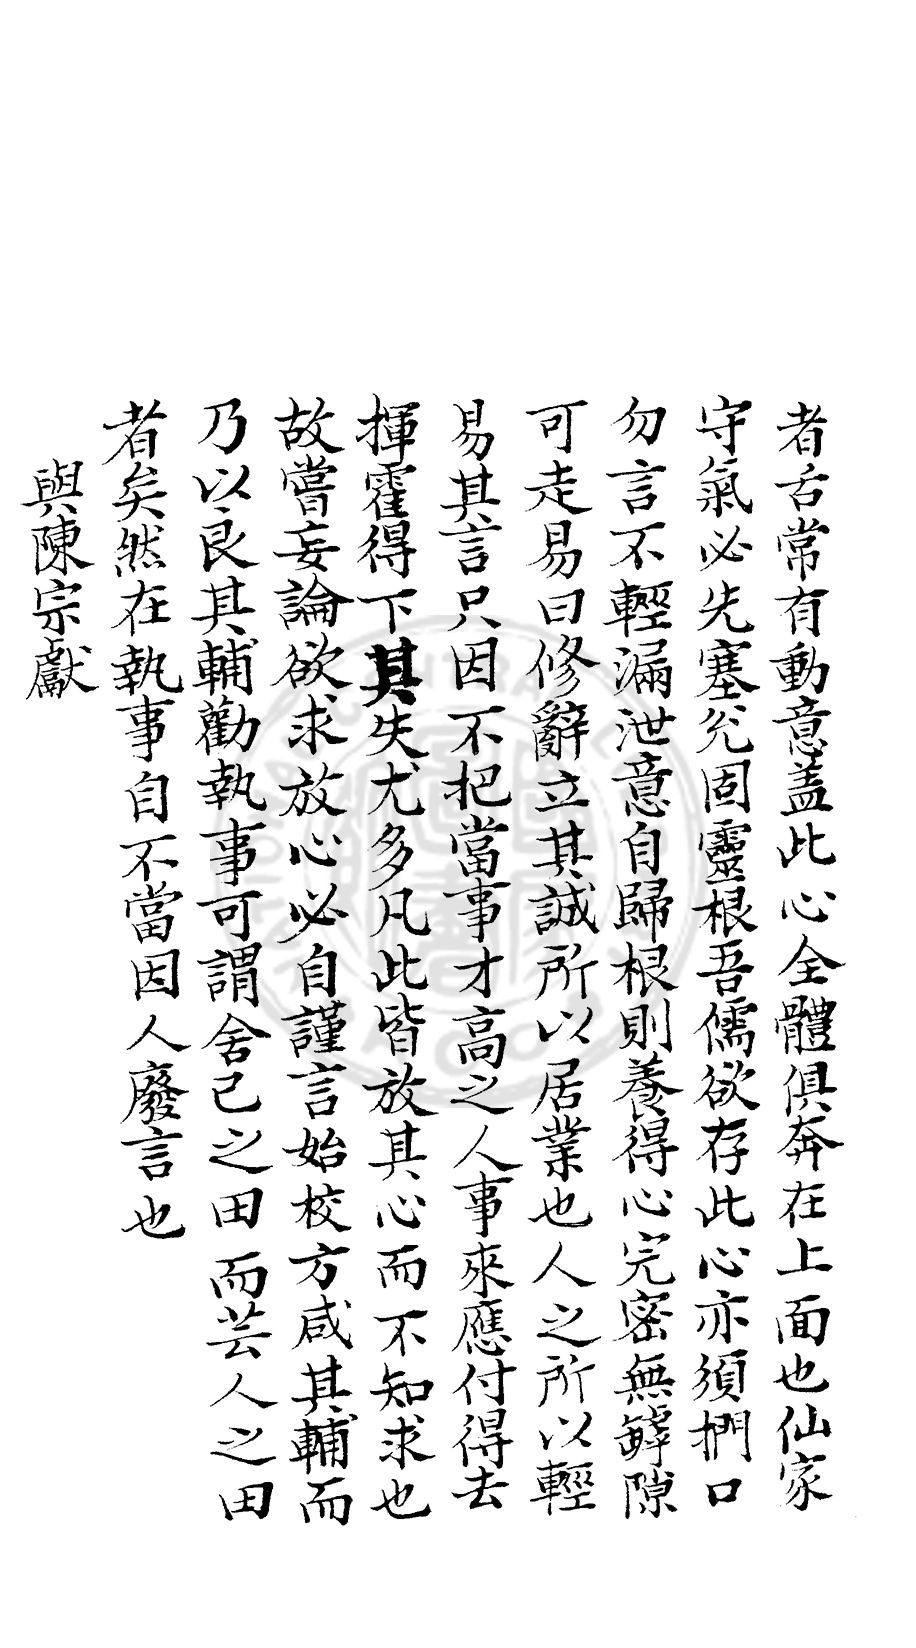 者舌常有動意盖此心全體俱奔在上面也仙家
守氣必先塞兊固靈根吾儒欲存此心亦須捫口
勿言不輕漏泄意自歸根則養得心完密無罅隙
可走易曰修辭立其誠所以居業也人之所以輕
易其言只因不把當事才高之人事來應付得去
揮霍得下其失尤多凡此皆放其心而不知求也
故嘗妄論欲求放心必自謹言始校方咸其輔而
乃以良其輔勸執事可謂舍己之田而芸人之田
者矣然在執事自不當因人廢言也
與陳宗獻